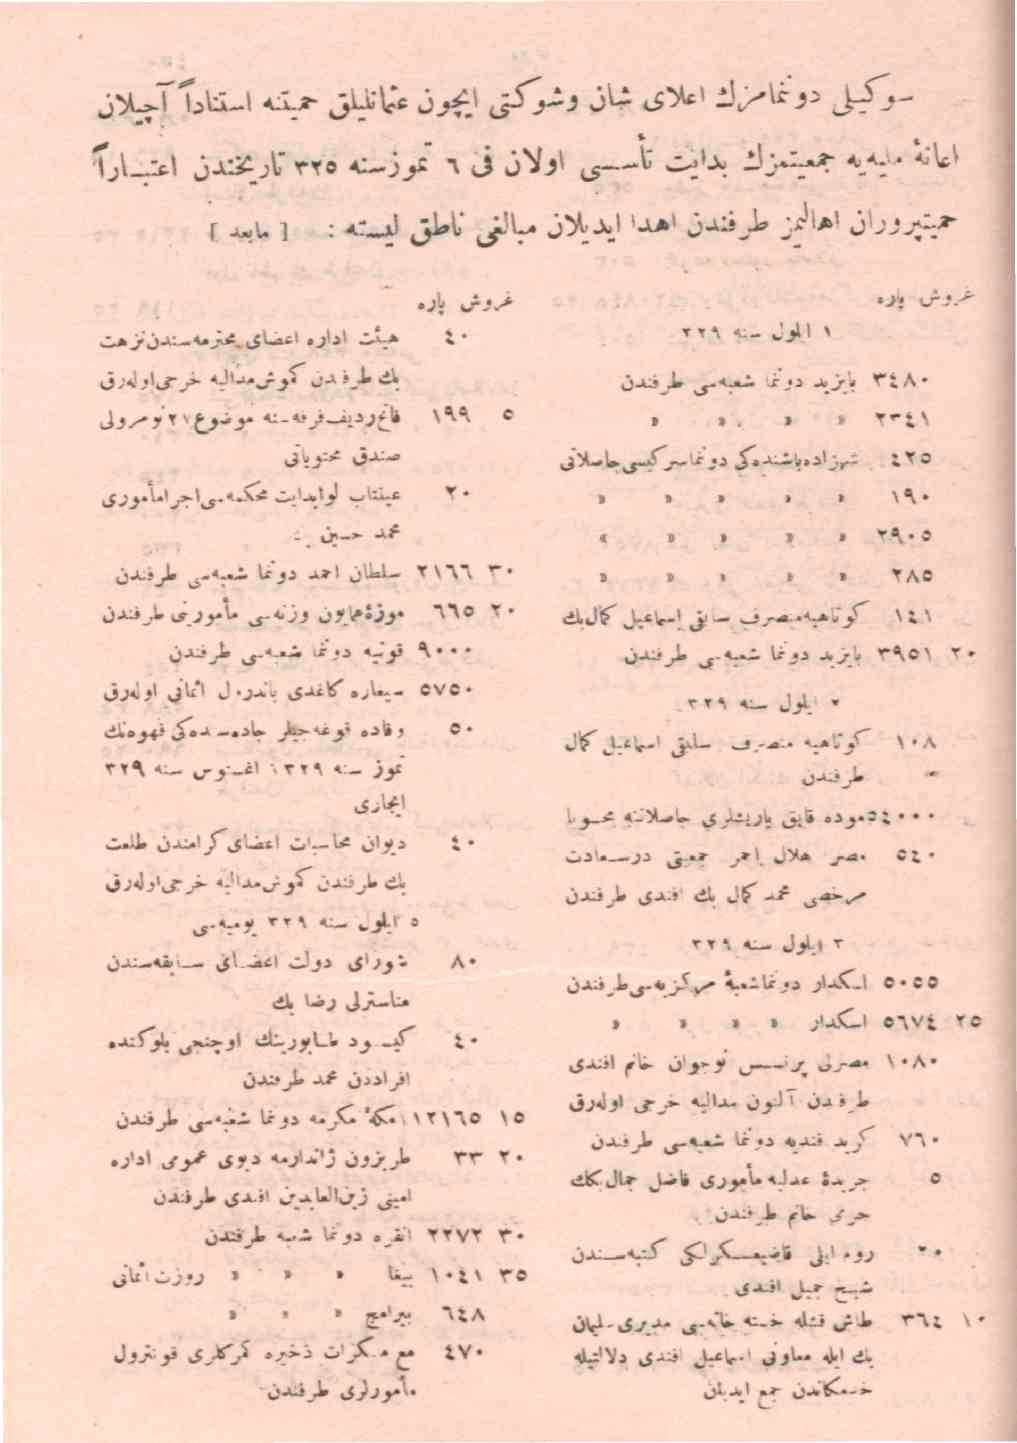 سوکیلی دوننمامزك اعلای شان وشوکتی ایچون عثمانلیلق حمیتنه استناداً آچیلان
اعانۀ ملیه‌یه جمعیتمزك بدایت تأسسی اولان فی ٦ تموز سنه ٣٢٥ تاریخندن اعتباراً
حمیتپروران اهالیمز طرفندن اهدا ایدیلان مبالغی ناطق لیسته : [ مابعد ]
غروش پاره
١ ایلول سنه ٣٢٩
٣٤٨٠ بایزید دوننما شعبه‌سی طرفندن
٢٣٤١ » » » »
٤٢٥ شهزاده‌باشنده‌کی دوننما سرکیسی حاصلاتی
١٩٠ » » » » »
٢٩٠٥ » » » » »
٢٨٥ » » » » »
١٤١ کوتاهیه متصرف سابقی اسماعیل کمال بك
٣٩٥١ ٢٠ بایزید دوننما شعبه‌سی طرفندن
٢ ایلول سنه ٣٢٩
١٠٨ کوتاهیه متصرف سابقی اسماعیل کمال
طرفندن
٥٤٠٠٠ موده قایق یاریشلری حاصلاتنه محسوبا
٥٤٠ مصر هلال احمر جمعیتی درسعادت
مرخصی محمد کمال بك افندی طرفندن
٣ ایلول سنه ٣٢٩
٥٠٥٥ اسکدار دوننما شعبۀ مرکزیه‌سی طرفندن
٥٦٧٤ ٢٥ اسکدار » » » »
١٠٨٠ مصرلی پرنسس نوجوان خانم افندی
طرفدن آلتون مدالیه خرجی اوله‌رق
٧٦٠ کرید فندیه دوننما شعبه‌سی طرفندن
٥ جریدۀ عدلیه مأموری فاضل جمال بكك
حرمی خانم طرفندن
٢٠ روم ایلی قاضیعسکرلکی کتبه‌سندن
شیخ جمیل افندی
٣٦٤ ١٠ طاش قشله خسته خانه‌سی مدیری سلیمان
بك ایله معاونی اسماعیل افندی دلالتیله
خدمکاندن جمع ایدیلن
غروش پاره
٤٠ هیئت اداره اعضای محترمه‌سندن نزهت
بك طرفدن کموش مدالیه خرجی اوله‌رق
١٩٩ ٥ فاتح ردیف فرقه‌سنه موضوع ٢٧ نومرولی
صندق محتویاتی
٢٠ عینتاب لوا بدایت محکمه‌سی اجرا مأموری
محمد حسین
٢١٦٦ ٣٠ سلطان احمد دوننما شعبه‌سی طرفندن
٦٦٥ ٢٠ موزۀ همایون وزنه‌سی مأموریتی طرفندن
٩٠٠٠ قونیه دوننما شعبه‌سی طرفندن
٥٧٥٠ سیغاره کاغدی باندرول اثمانی اوله‌رق
٥٠ وفاده قوغه‌جیلر جاده‌سنده‌کی قهوه‌نك
تموز سنه ٣٢٩ اغستوس سنه ٣٢٩
ایجاری
٤٠ دیوان محاسبات اعضای کرامندن طلعت
بك طرفندن کموش مدالیه خرجی اوله‌رق
٥ ایلول سنه ٣٢٩ یومیه‌سی
٨٠ شورای دولت اعضای سابقه‌سندن
مناسترلی رضا بك
٤٠ طابورینك اوچنجی بلوکنده
افراددن محمد طرفندن
١٢١٦٥ ١٥ مکۀ مکرمه دوننما شعبه‌سی طرفندن
٣٣ ٢٠ طربزون ژاندارمه دپوی عمومی اداره
امینی زین‌العابدین افندی طرفندن
٢٢٧٢ ٣٠ انقره دوننما شعبه طرفندن
١٠٤١ ٣٥ بیغا » » » روزت اثمانی
٦٤٨ بیرامیچ » » » »
٤٧٠ مع مسکرات ذخیره کمرکلری قونترول
مأمورلری طرفندن